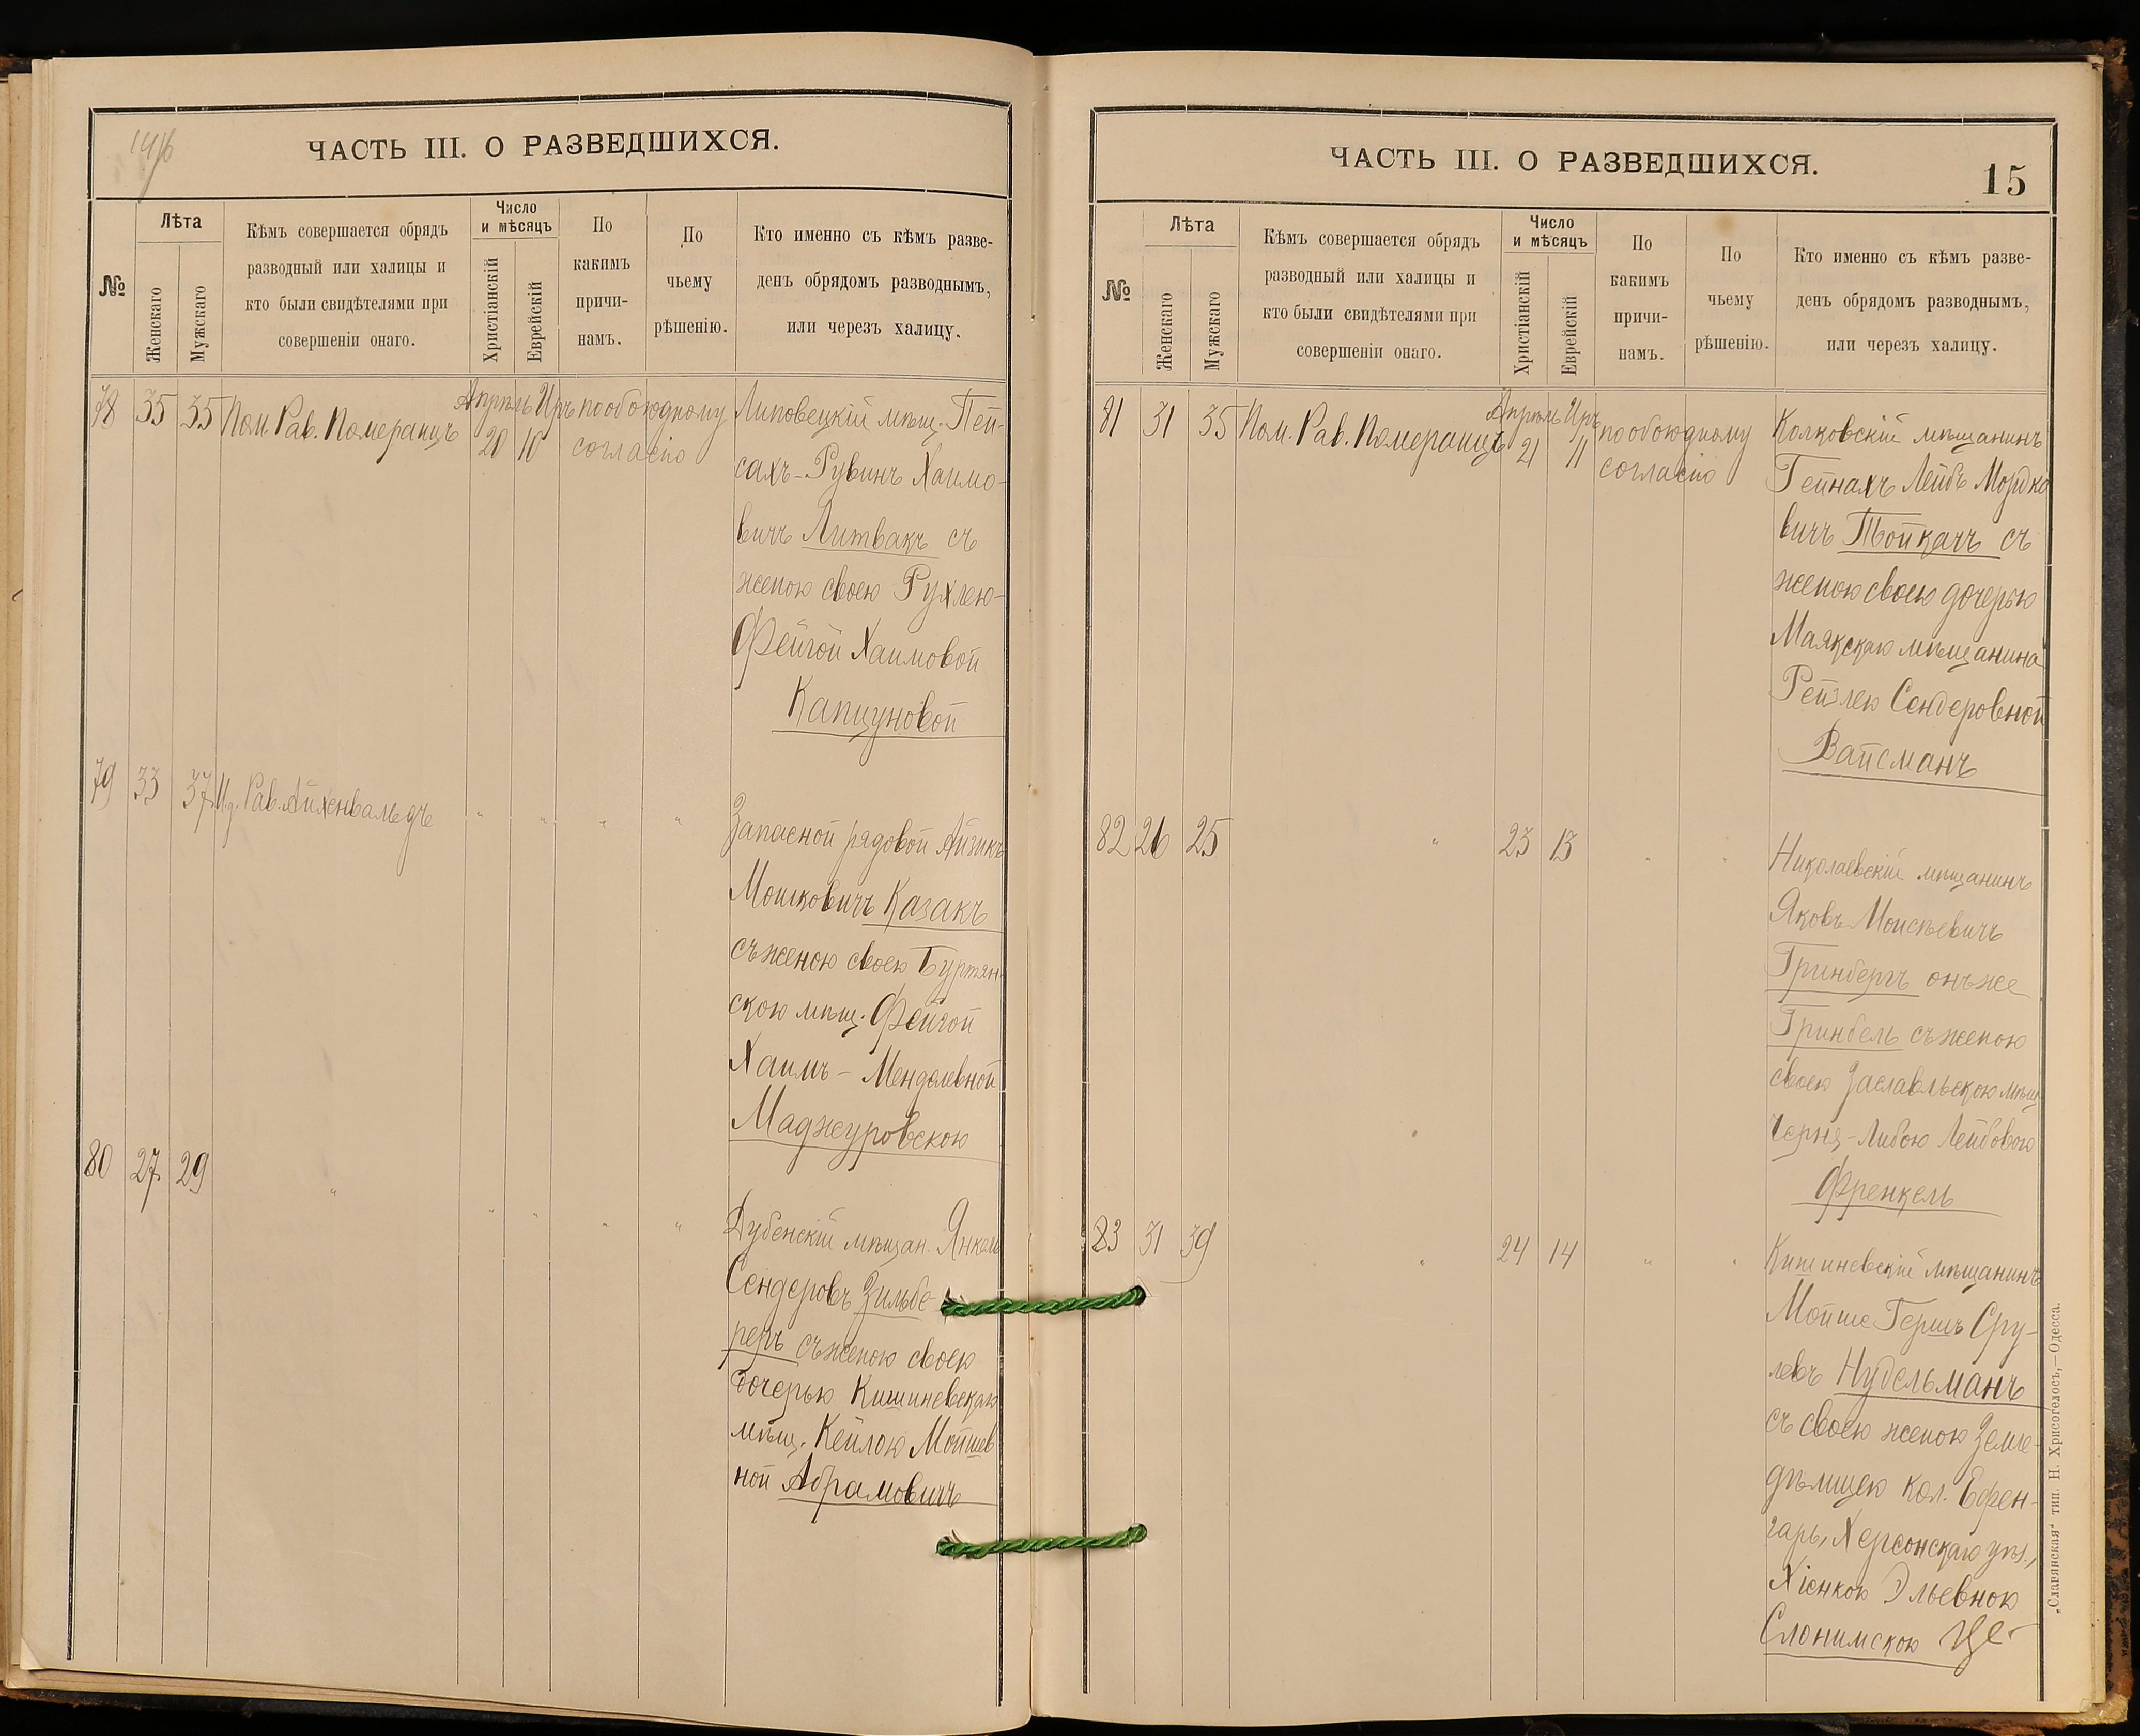 1916
ЧАСТЬ III. О РАЗВЕДШИХСЯ.
№
Лѣта
Женскаго
Мужскаго
Кѣмъ совершается обрядъ
разводный или халицы и
кто были свидѣтелями при
совершеніи онаго.
Число
и мѣсяцъ
Христіанскій
Еврейскій
По
какимъ
причи-
намъ.
По
чьему
рѣшенію.
Кто именно съ кѣмъ разве-
денъ обрядомъ разводнымъ,
или черезъ халицу.
78 35 35 Пом. Рав. Померанцъ Апрѣль Иръ по обоюдному
20 10 согласію
Липовецкій мѣщ. Пей-
сахъ-Рувинъ Хаимо-
вичъ Литвакъ съ
женою своею Рухлею-
Фейгой Хаимовой
Капцуновой
79 33 37 Ид. Рав. Айхенвальдъ " " " "
Запасной рядовой Айзикъ
Мошковичъ Казакъ
съ женою своею Буртян-
скою мѣщ. Фейгой
Хаимъ-Менделевной
Маджуровскою
80 27 29 " " " " "
Дубенскій мѣщан. Янкель
Сендеровъ Зильбе-
реръ съ женою своею
дочерью Кишиневскаго
мѣщ. Кейлою Мойшев
ной Абрамовичъ
ЧАСТЬ III. О РАЗВЕДШИХСЯ.
15
№
Лѣта
Женскаго
Мужскаго
Кѣмъ совершается обрядъ
разводный или халицы и
кто были свидѣтелями при
совершеніи онаго.
Число
и мѣсяцъ
Христіанскій
Еврейскій
По
какимъ
причи-
намъ.
По
чьему
рѣшенію.
Кто именно съ кѣмъ разве-
денъ обрядомъ разводнымъ,
или черезъ халицу.
81 31 35 Пом. Рав. Померанцъ Апрѣль Иръ по обоюдному
21 11 согласію
Колковскій мѣщанинъ
Гейнахъ Лейбъ Мордко
вичъ Тройкачъ съ
женою своею дочерью
Маякскаго мѣщанина
Рейзлею Сендеровной
Вайсманъ
82 26 25 " 23 13 " "
Николаевскій мѣщанинъ
Яковъ Моисѣевичъ
Гринбергъ онъ же
Гринбель съ женою
своею Заславльскою мѣщ
Черня-Либою Лейбовою
Френкель
83 31 39 " 24 14 " "
Кишиневскій мѣщанинъ
Мойше Гершъ Сру-
левъ Нудельманъ
съ своею женою Земле-
дѣлицею кол. Ефен-
гарь, Херсонскаго уѣз.,
Хіенкою Эльевною
Слонимскою
„Славянская" тип. Н. Хрисогелосъ,—Одесса.